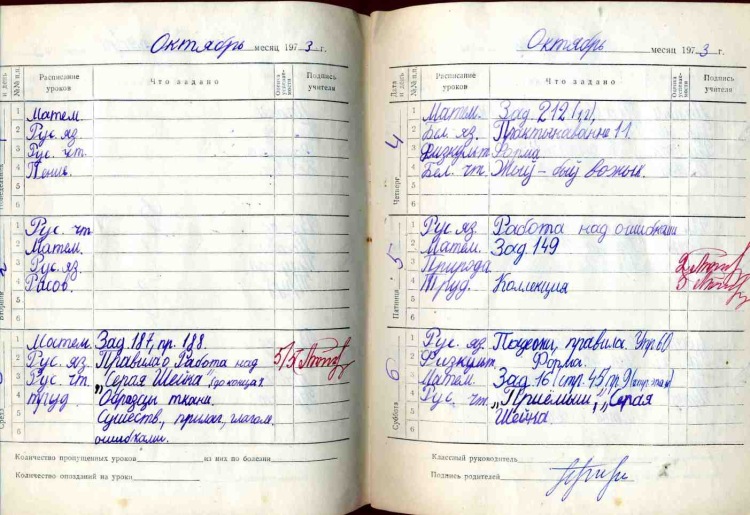 Октябрь месяц 1973 г.
и день №№ п.п. Расписание уроков Что задано Оценка успеваемости Подпись учителя
1 Матем.
2 Рус. яз.
3 Рус. чт.
4 Пение.
5
6
Понедельник
1 Рус. чт
2 Матем.
3 Рус. яз.
4 Рисов.
5
6
Вторник 2
1 Матем. Зад. 187, пр. 188.
2 Рус. яз. Правило Работа над 5/5
3 Рус. чт. „Серая Шейка" до конца
4 труд Образцы ткани.
5 Существ., прилаг., глагол.
6 ошибками.
Среда
Количество пропущенных уроков из них по болезни
Количество опозданий на уроки
Октябрь месяц 1973 г.
Дата и день №№ п.п. Расписание уроков Что задано Оценка успеваемости Подпись учителя
1 Матем. Зад. 212
2 Бел. яз. Практыкаванне 11.
3 Физкульт. Форма
4 Бел. чт. Жыў-быў вожык.
5
6
Четверг 4
1 Рус. яз. Работа над ошибками
2 Матем. Зад. 149
3 Природа
4 Труд. Коллекция
5
6
Пятница 5
1 Рус. яз. правила. Упр 60
2 Физкульт. Форма.
3 Матем. Зад. 16 (стр. 45) пр. 9
4 Рус. чт. „Приёмыш", „Серая
5 Шейка.
6
Суббота 6
Классный руководитель
Подпись родителей